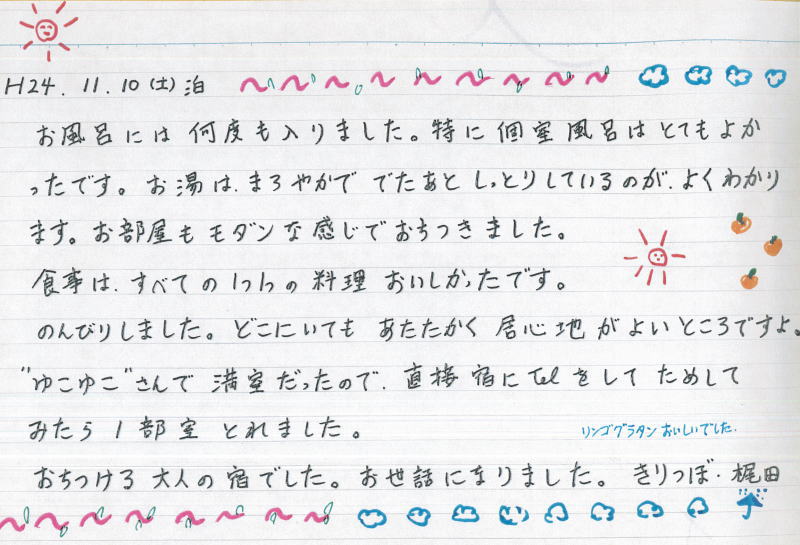 H24. 11. 10 (土) 泊
お風呂には 何度も入りました。特に 個室風呂は とてもよか
ったです。お湯は、まろやかで でたあと しっとりしているのが、よくわかり
ます。お部屋も モダンな感じでおちつきました。
食事は、すべての1つ1つの料理 おいしかったです。
のんびりしました。どこにいても あたたかく 居心地がよいところですよ。
"ゆこゆこ"さんで 満室だったので、直接宿にTelをして ためして
みたら 1部室 とれました。
リンゴグラタン おいしいでした.
おちつける 大人の宿でした。お世話になりました。 きりつぼ・梶田